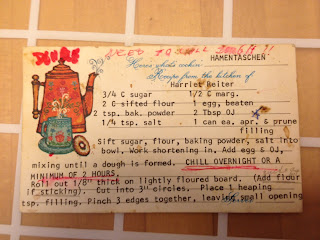 DOUBLE
HAMENTASCHEN
Here's what's cookin'
Recipe from the kitchen of
Harriet Reiter
3/4 C sugar 1/2 C marg.
2 C sifted flour 1 egg, beaten
2 tsp. bak. powder 2 Tbsp OJ
1/4 tsp. salt 1 can ea. apr. & prune
filling
Sift sugar, flour, baking powder, salt into
bowl. Work shortening in. Add egg & OJ,
mixing until a dough is formed. CHILL OVERNIGHT OR A
MINIMUM OF 2 HOURS.
Roll out 1/8" thick on lightly floured board. (Add flour
if sticking). Cut into 3" circles. Place 1 heaping
tsp. filling. Pinch 3 edges together, leaving small opening